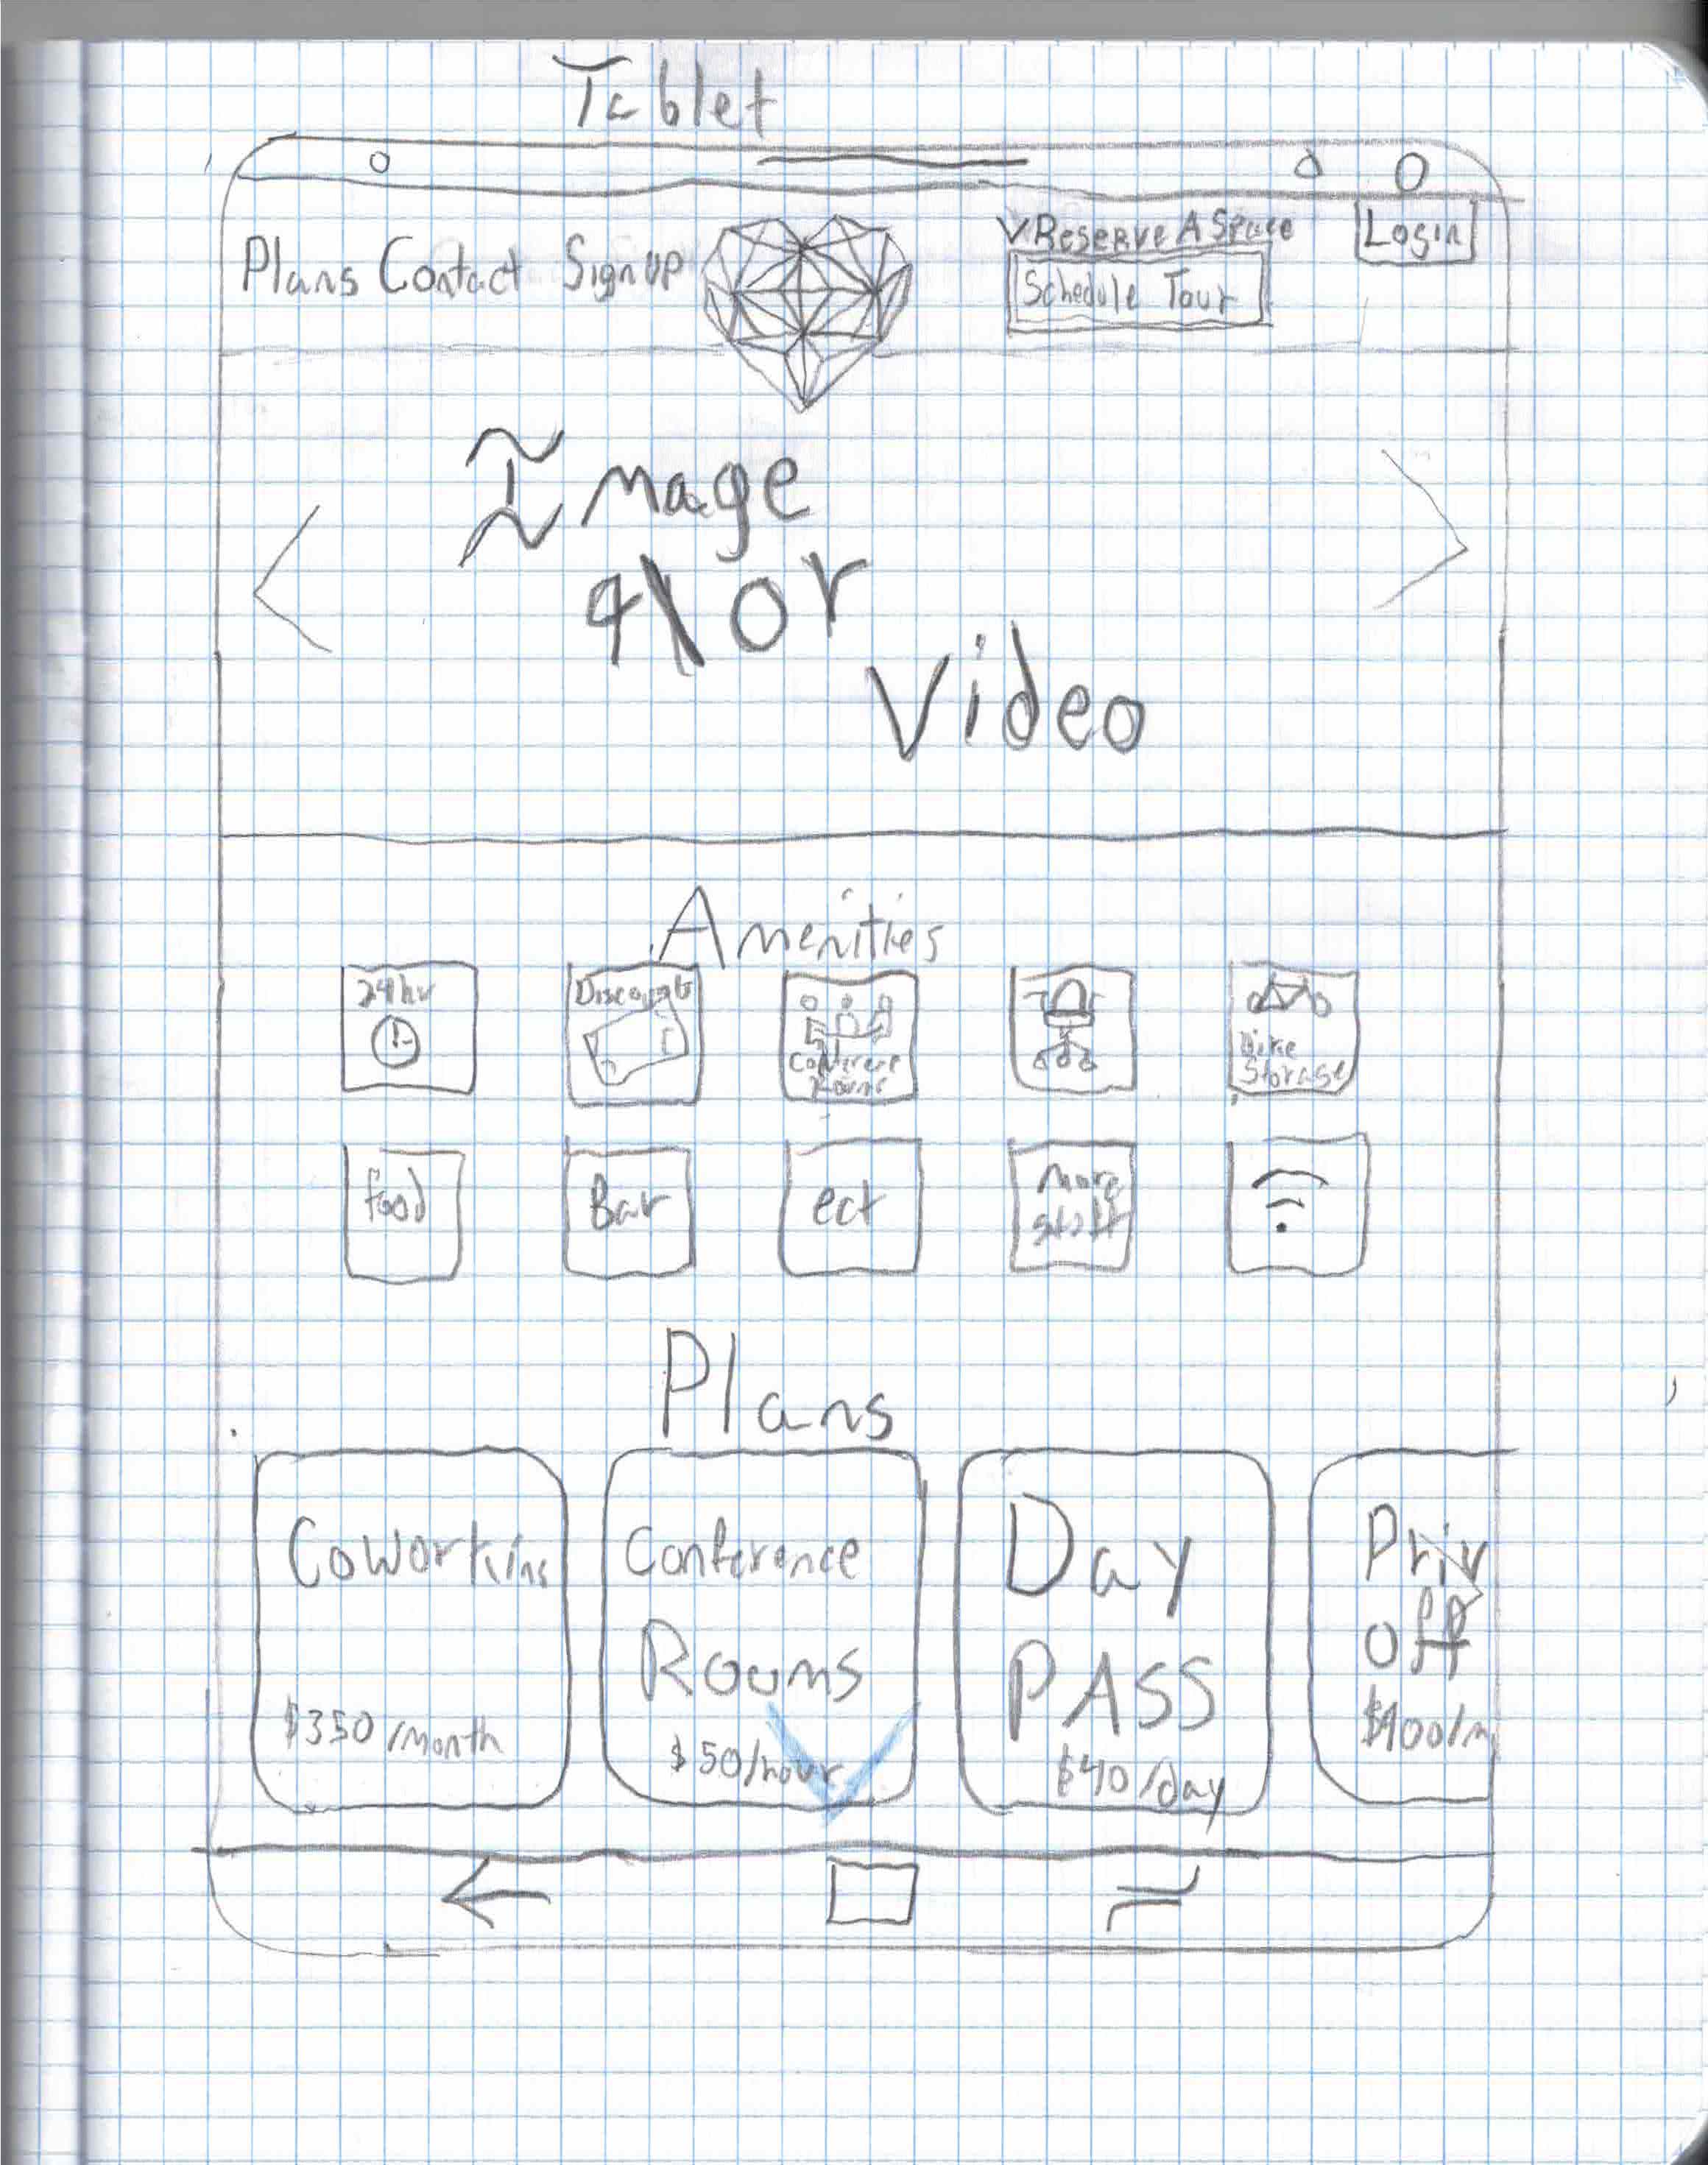 Tablet
Plans Contact Sign UP
Reserve A Space
Login
Schedule Tour
Image
&\or
Video
Amenities
24hr
Discounts
Conference
Rooms
Bike
Storage
food
Bar
ect
more
stuff
Plans
Coworking
$350/month
Conference
Rooms
$50/hour
Day
PASS
$40/day
Priv
Off
$900/m